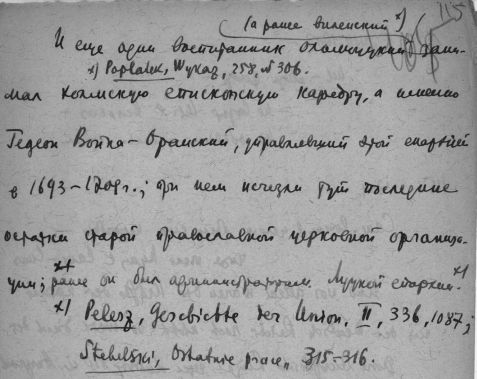 (а ранее виленский *)
115
И еще один воспитанник оломуцкий зани-
*) Poplatek, Wykaz, 258, № 306.
мал холмскую епископскую кафедру, а именно
Гедеон Война-Оранский, управлявший этой епархией
в 1693–1709 г.; при нем исчезли тут последние
остатки старой православной церковной организа-
ции; *+ ранее он был администратором Луцкой епархии. *)
*) Pelesz, Geschichte der Union, II, 336, 1087;
Stebelski, Ostatnie prace, 315-316.